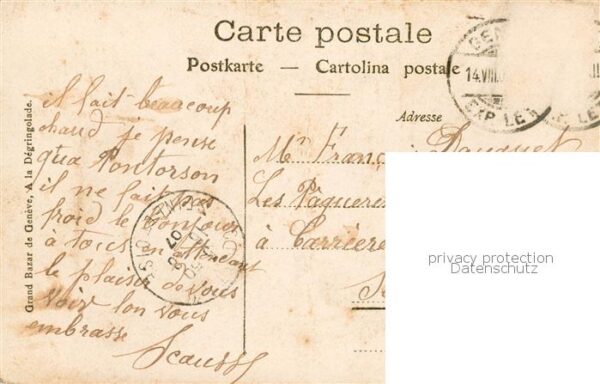 Carte postale
Postkarte — Cartolina postale
Adresse
Grand Bazar de Genève, A la Dégringolade.
il fait beaucoup
chaud je pense
qua Pontorson
il ne fait pas
froid le bonjour
à tous en attendant
le plaisir de vous
voir lon vous
embrasse
Mr Franç Dauguet
Les Pâquere
à Carriere
GEN
14.VIII.
EXP. LET
07
privacy protection
Datenschutz